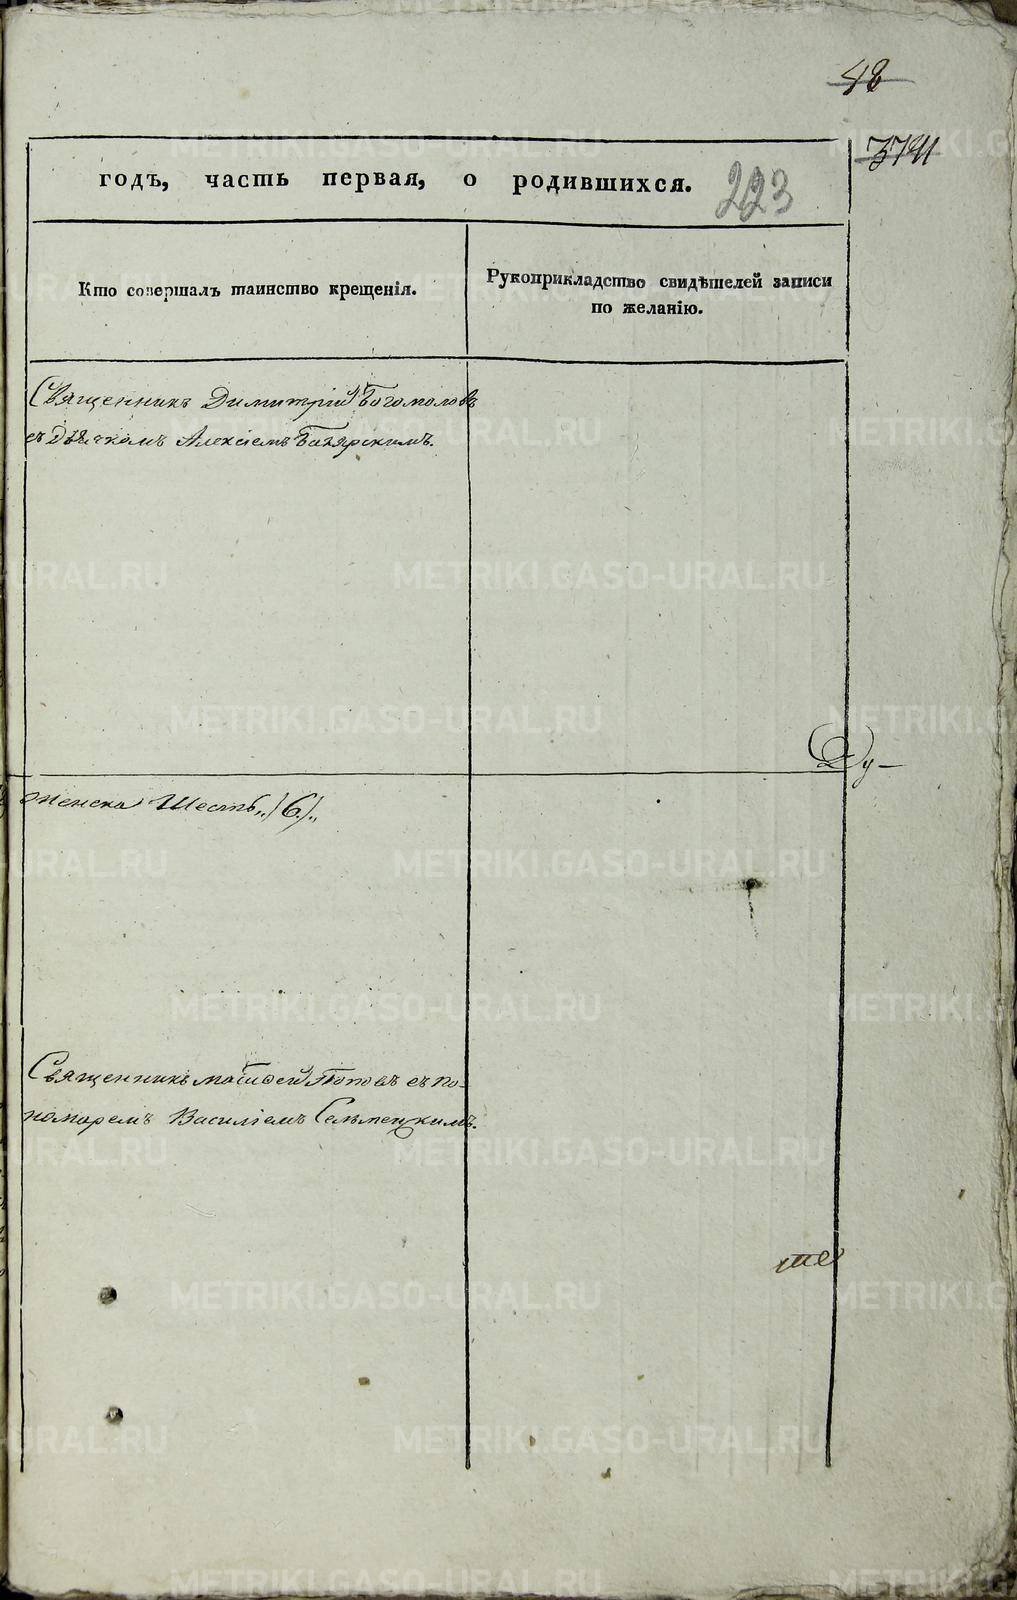 48
годъ, часть первая, о родившихся.
223
Кто совершалъ таинство крещенія.
Рукоприкладство свидѣтелей записи
по желанію.
Священникъ Димитрій Богомоловъ
съ Дьячкомъ Алексіемъ
Ду-
женска Шесть,,/6/,,
Священникъ Матѳей Поповъ съ по-
номаремъ Василіемъ
METRIKI.GASO-URAL.RU